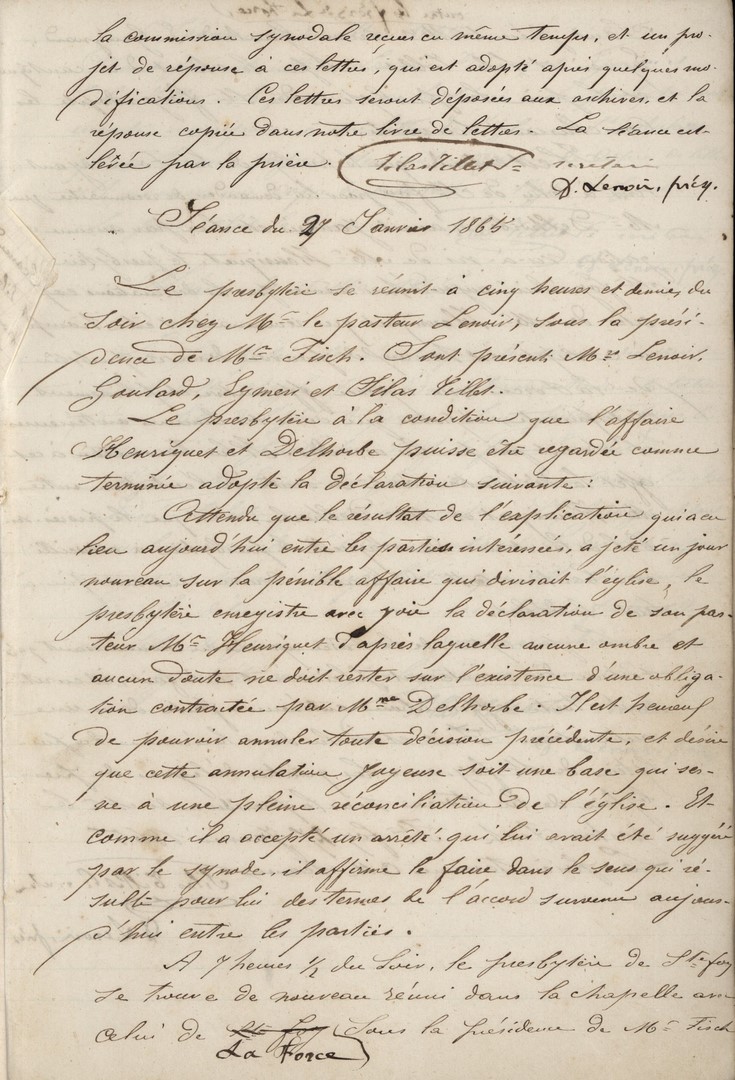 la commission synodale reçues en même temps, et un pro-
jet de réponse à ces lettres, qui est adopté après quelques mo-
difications. Ces lettres seront déposées aux archives, et la
réponse copiée dans notre livre de lettres. La séance est
levée par la prière. Silas Villet secrétaire
D. Lenoir, prés.
Séance du 27 Janvier 1865
Le presbytère se réunit à cinq heures et demies du
soir chez Mr le pasteur Lenoir, sous la prési-
dence de Mr Fisch. Sont présents Mrs Lenoir,
Goulard, Eymeri et Silas Villet.
Le presbytère à la condition que l'affaire
Henriquet et Delhorbe puisse être regardée comme
terminée adopte la déclaration suivante:
Attendu que le résultat de l'explication qui a eu
lieu aujourd'hui entre les parties intéressées, a jeté un jour
nouveau sur la pénible affaire qui divisait l'église, le
presbytère enregistre avec joie la déclaration de son pas-
teur Mr Henriquet d'après laquelle aucune ombre et
aucun doute ne doit rester sur l'existence d'une obliga-
tion contractée par Mme Delhorbe. Il est heureux
de pouvoir annuler toute décision précédente, et désire
que cette annulation joyeuse soit une base qui ser-
ve à une pleine réconciliation de l'église. Et
comme il a accepté un arrêté qui lui avait été suggéré
par le synode, il affirme le faire dans le sens qui ré-
sulte pour lui des termes de l'accord survenu aujour-
d'hui entre les parties.
A 7 heures 1/2 du Soir, le presbytère de Ste foy
se trouve de nouveau réuni dans la chapelle avec
celui de Ste Foy sous la présidence de Mr Fisch
La Force